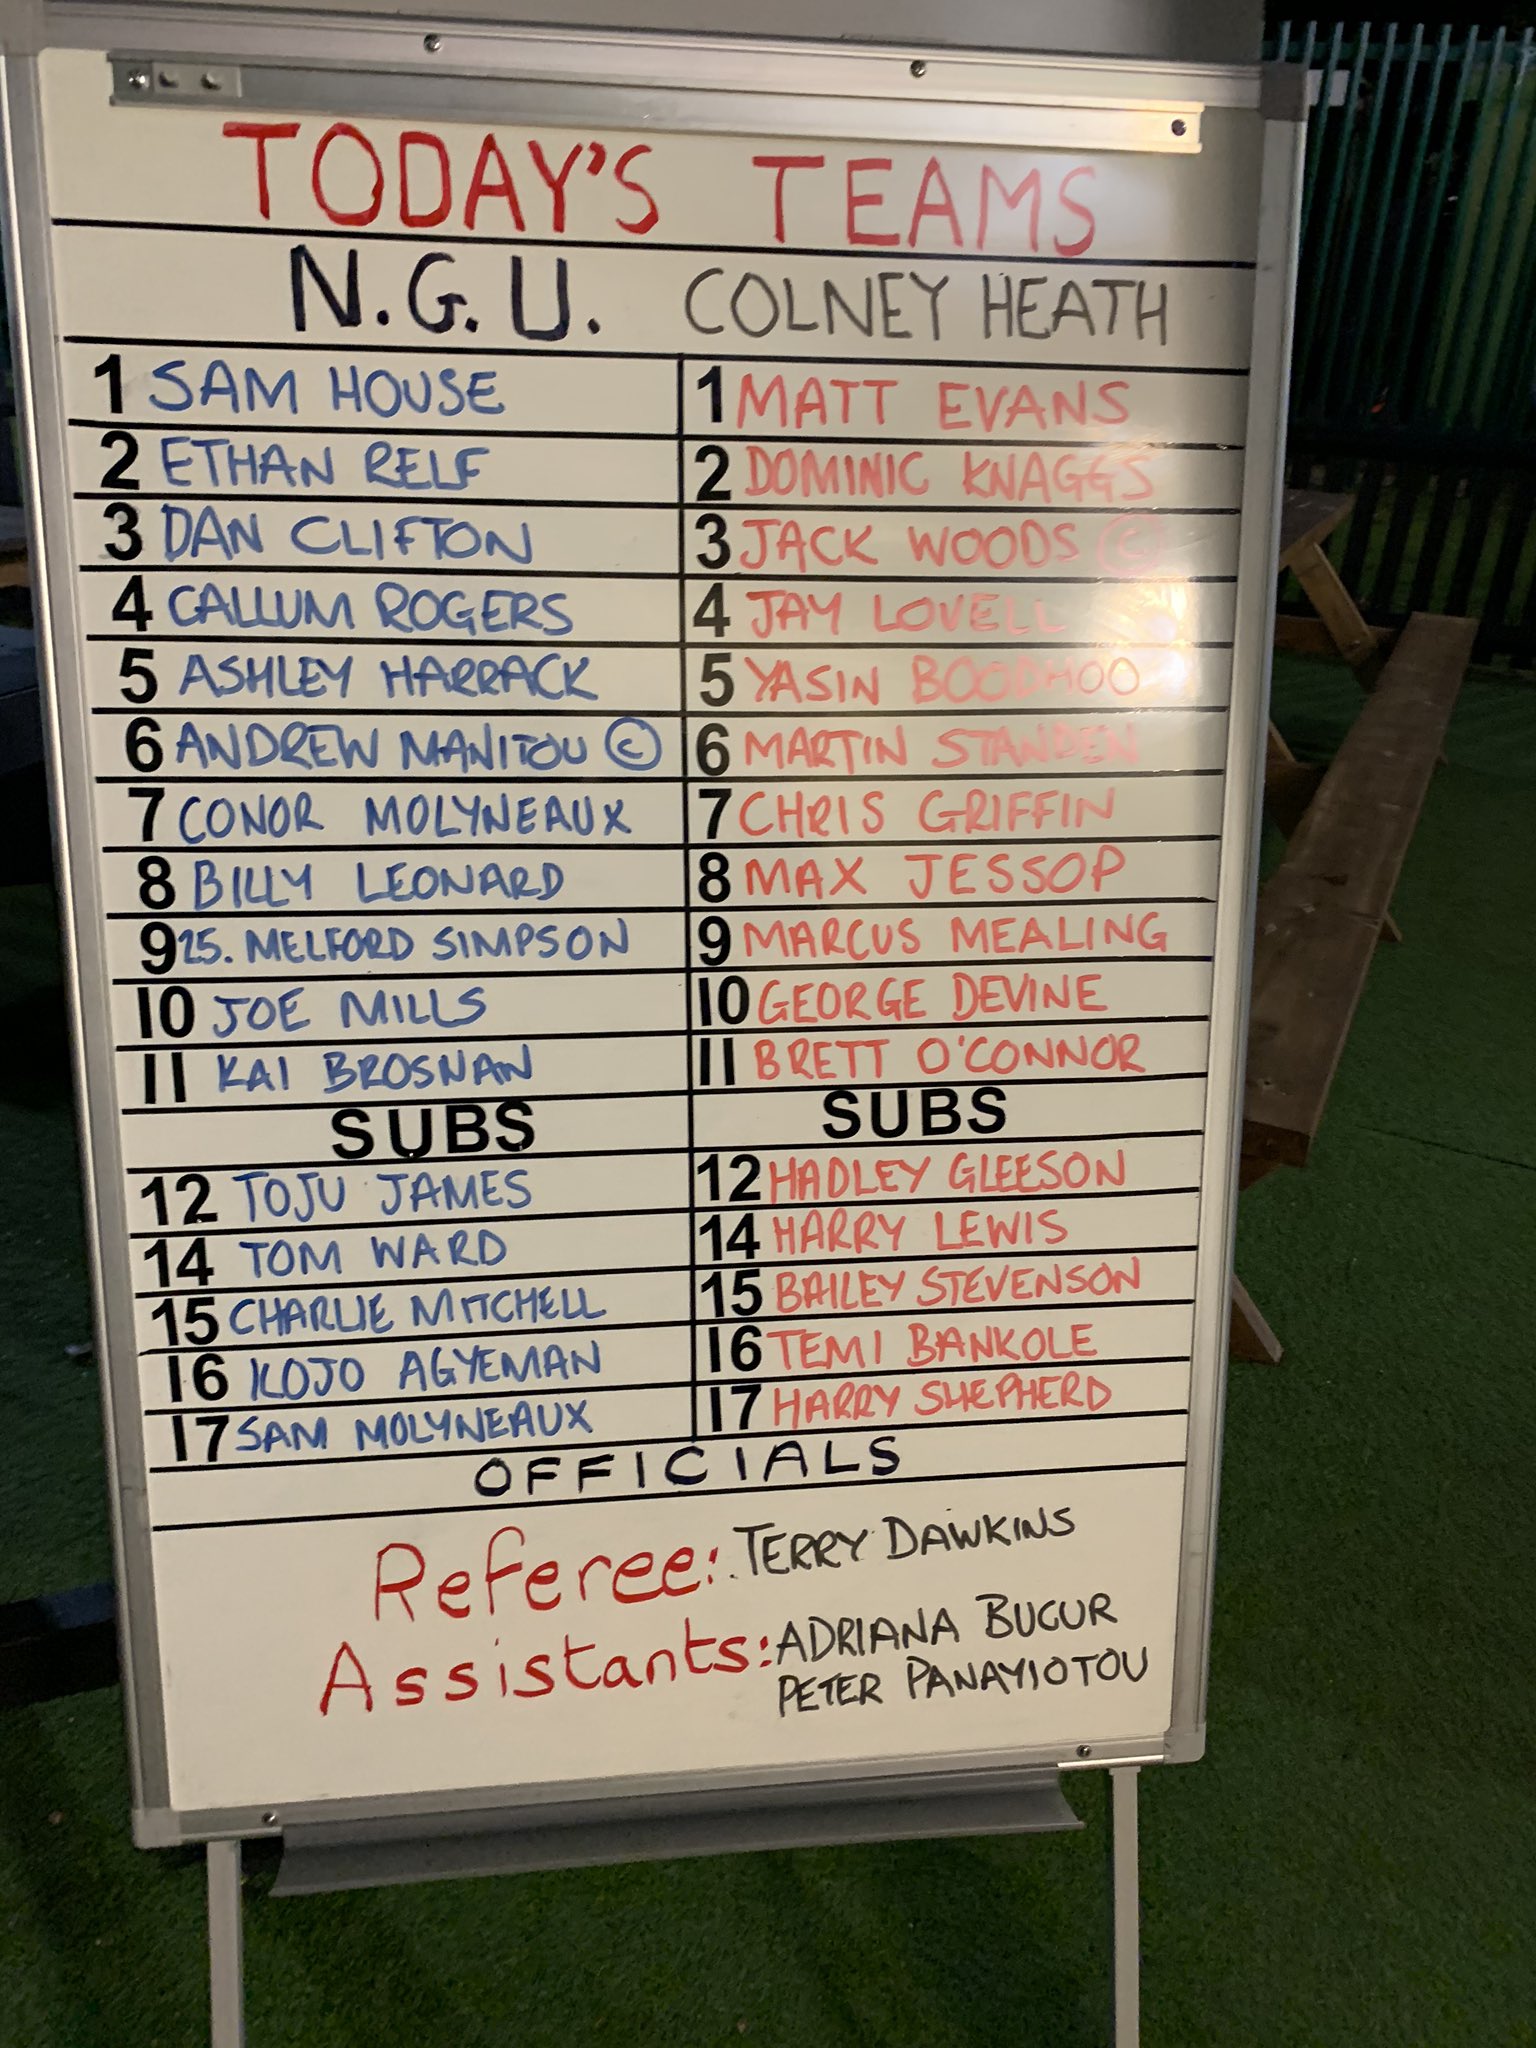 TODAY'S TEAMS
N.G.U. COLNEY HEATH
1 SAM HOUSE 1 MATT EVANS
2 ETHAN RELF 2 DOMINIC KNAGGS
3 DAN CLIFTON 3 JACK WOODS ©
4 CALLUM ROGERS 4 JAY LOVELL
5 ASHLEY HARRACK 5 YASIN BOODHOO
6 ANDREW MANITOU © 6 MARTIN STANDEN
7 CONOR MOLYNEAUX 7 CHRIS GRIFFIN
8 BILLY LEONARD 8 MAX JESSOP
9 25. MELFORD SIMPSON 9 MARCUS MEALING
10 JOE MILLS 10 GEORGE DEVINE
11 KAI BROSNAN 11 BRETT O'CONNOR
SUBS SUBS
12 TOJU JAMES 12 HADLEY GLEESON
14 TOM WARD 14 HARRY LEWIS
15 CHARLIE MITCHELL 15 BAILEY STEVENSON
16 KOJO AGYEMAN 16 TEMI BANKOLE
17 SAM MOLYNEAUX 17 HARRY SHEPHERD
OFFICIALS
Referee: TERRY DAWKINS
Assistants: ADRIANA BUCUR
PETER PANAYIOTOU